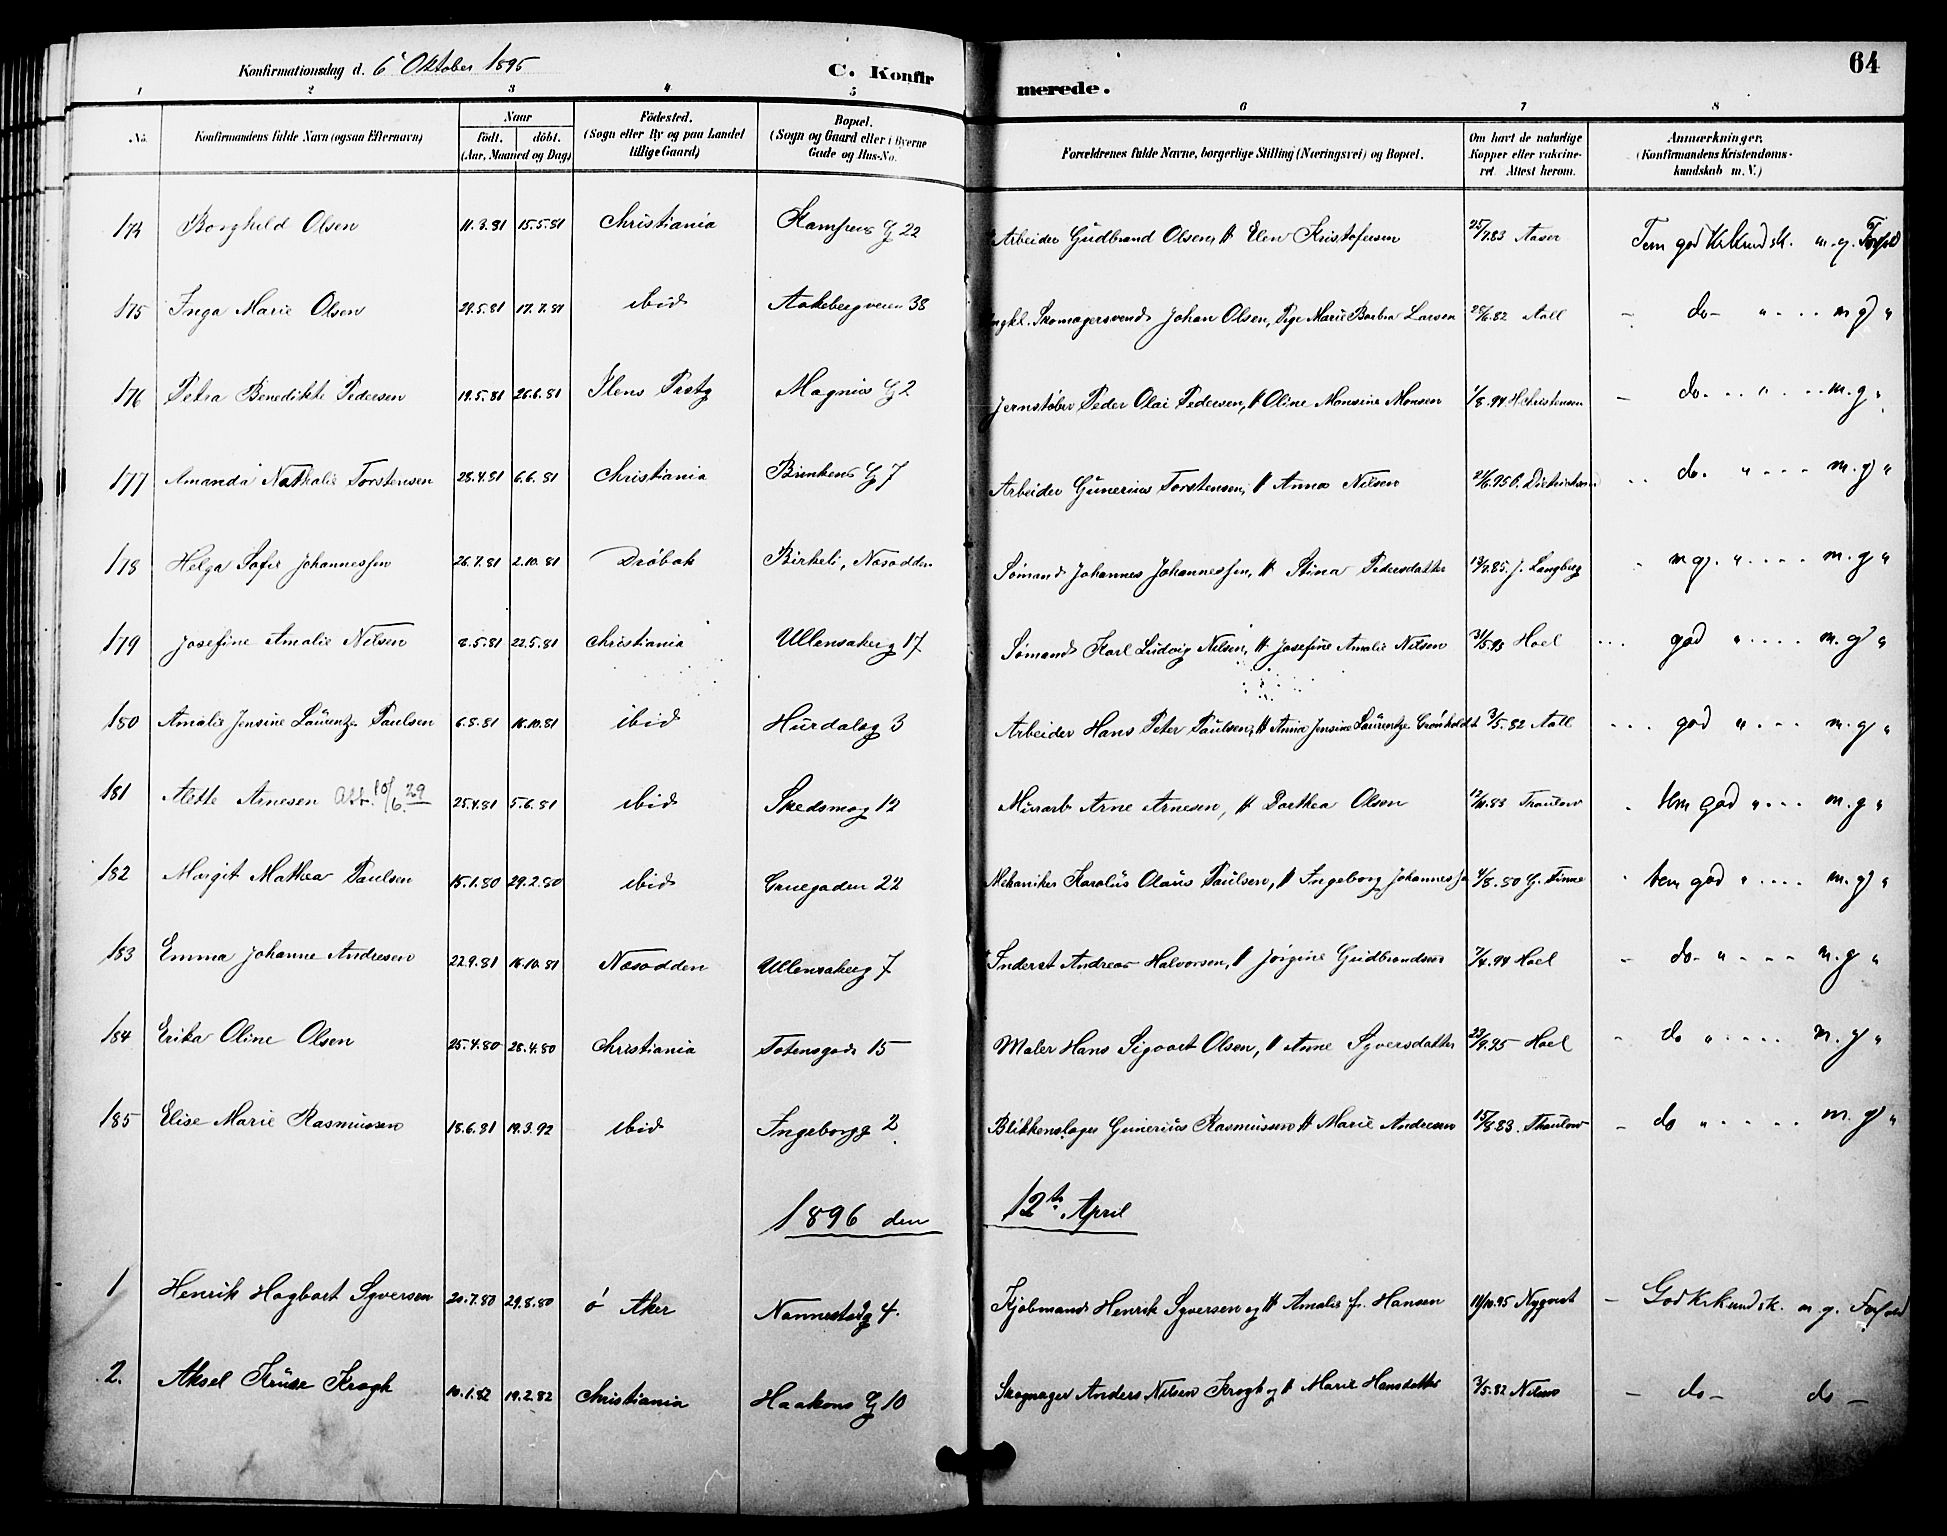 64
Konfirmationsdag d. 6' Oktober 1895 C. Konfir merede.
1 2 3 4 5 6 7 8
No. Konfirmandens fulde Navn (ogsaa Efternavn) Naar født. døbt. (Aar, Maaned og Dag) Fødested. (Sogn eller By og paa Landet tillige Gaard) Bopæl. (Sogn og Gaard eller i Byerne Gade og Hus-No. Forældrenes fulde Navne, borgerlige Stilling (Næringsvei) og Bopæl. Om havt de naturlige Kopper eller vakcineret. Attest herom. Anmærkninger. (Konfirmandens Kristendomskundskab m. V.)
174 Borghild Olsen 11.3.81 15.5.81 Christiania Kampens G 22 Arbeider Gudbrand Olsen, H Elen Kristofersen 25/7.83 Aaser Tem god Kr.Kundsk. m. g. Forhold
175 Inga Marie Olsen 29.5.81 17.7.81 ibid Aakebergveien 38 Ungkl. Skomagersvend Johan Olsen, Pige Marie Barbra Larsen 28/6.82 Aall – do – " . . . . m g "
176 Petra Benedikte Pedersen 19.5.81 26.6.81 Ilens Prstg Magnus G 2 Jernstøber Peder Olai Pedersen, H Oline Monsine Monsen 1/8.94 H Christensen – do . . . " . . . m. g "
177 Amanda Nathalie Torstensen 28.4.81 6.6.81 Christiania Bunkens G 7 Arbeider Gunerius Torstensen, H Anna Nilsen 21/6.95 . . do. " . . . . m. g "
178 Helga Sofie Johannessen 26.7.81 2.10.81 Drøbak Birkeli, Næsodden Sømand Johannes Johannessen, H Stina Pedersdatter 13/7.85. J. Langberg . m g. " . . . . m. g "
179 Josefine Amalie Nilsen 8.5.81 22.5.81 Christiania Ullensakerg 17 Sømand Karl Ludvig Nilsen, H Josefine Amalie Nilsen 31/5.95 Hoel . . . god " . . . . m. g "
180 Amalie Jensine Laurentze Paulsen 6.8.81 16.10.81 ibid Hurdalsg 3 Arbeider Hans Peter Paulsen, H Anna Jensine Laurentze Grønholdt 3/5.82 Aall . . . god " . . . m. g "
181 Alette Arnesen Att. 10/6.29 25.4.81 5.6.81 ibid Skedsmog 12 Murarb Arne Arnesen, H Dorthea Olsen 12/10.83 Thaulow . tem god " . . . m. g "
182 Margit Mathea Paulsen 15.1.80 29.2.80 ibid Gruegaden 22 Mekaniker Karolus Olaus Paulsen, H Ingeborg 4/8.80 G. Finne . tem god " . . . . m. g "
183 Emma Johanne Andresen 22.9.81 16.10.81 Næsodden Ullensakerg 7 Inderst Andreas Halvorsen, H Jørgine Gudbrandsen 7/4.94 Hoel – do – " – – – – m. g "
184 Erika Oline Olsen 25.4.80 28.4.80 Christiania Totensgade 15 Maler Hans Sigvart Olsen, H Anne Syversdatter 23/9.95 Hoel – do " . . . . m. g "
185 Elise Marie Rasmussen 18.6.81 19.3.92 ibid Ingeborgg 2 Blikkenslager Gunerius Rasmussen H Marie Andresen 15/8.83. Thaulow – do " . . . . . m. g "
1896 den 12te April
1 Henrik Hagbart Syversen 20.7.80 29.8.80 ø Aker Nannestadg 4. Kjøbmand Henrik Syversen og H Amalie f. Hansen 11/10.95 Nyqvist – God Kr.kundsk. m. g. Forhold
2. Aksel Kruse Krogh 10.1.82 19.2.82 Christiania Haakons G 10 Skomager Anders Nilsen Krogh og H Marie Hansdatter 3/5.82 Nilsen – do – do –